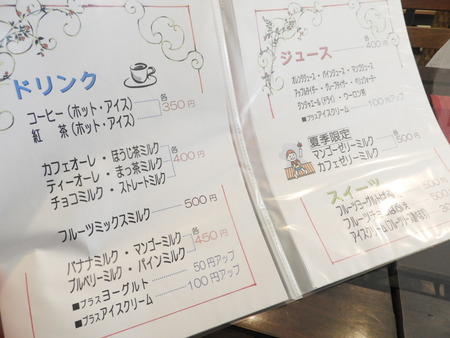 ドリンク
コーヒー(ホット・アイス)
紅　茶(ホット・アイス)
各350円
カフェオーレ・ほうじ茶ミルク
ティーオーレ・まっ茶ミルク
チョコミルク・ストレートミルク
各400円
フルーツミックスミルク 500円
バナナミルク・マンゴーミルク
ブルベリーミルク・パインミルク
各450円
■プラスヨーグルト 50円アップ
■プラスアイスクリーム 100円アップ
ジュース
各400円
オレンジジュース・パインジュース・マンゴジュース
■プラスアイスクリーム 100円アップ
夏季限定
マンゴーゼリーミルク
カフェゼリーミルク
各500円
スイーツ
500円